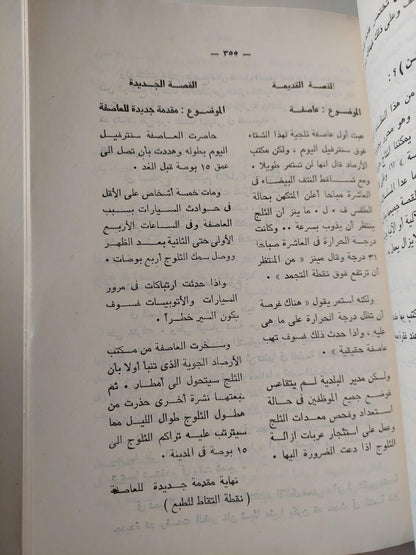 — ٣٥٥ —
القصة القديمة
الموضوع : عاصفة
هبت أول عاصفة ثلجية لهذا الشتاء
فوق سنترفيل اليوم ، ولكن مكتب
الأرصاد قال أنها لن تستمر طويلا .
ومع تساقط النتف البيضاء فى
العاشرة صباحا أعلن المتكهن بحالة
الطقس ف . ل . ماينز أن الثلج
ينتظر أن يذوب بسرعة .. وكانت
درجة الحرارة فى العاشرة صباحا
٣١ درجة وقال مينز « من المنتظر
أن ترتفع فوق نقطة التجمد » .
ولكنه استمر يقول « هناك فرصة
أن تظل درجة الحرارة على ما هى
عليه . واذا حدث ذلك فسوف تهب
عاصفة حقيقية » .
ولكن مدير البلدية لم يتقاعس
فوضع جميع الموظفين فى حالة
استعداد وفحص معدات الثلج
وعمل على استئجار عربات ازالة
الثلوج اذا دعت الضرورة اليها .
القصة الجديدة
الموضوع : مقدمة جديدة للعاصفة
حاصرت العاصفة سنترفيل
اليوم بطوله وهددت بأن تصل الى
عمق ١٥ بوصة قبل الغد .
ومات خمسة أشخاص على الأقل
فى حوادث السيارات بسبب
العاصفة وفى الساعات الأربع
الأولى حتى الثانية بعد الظهر
ووصل سمك الثلوج أربع بوصات .
واذا حدثت ارتباكات فى مرور
السيارات والأتوبيسات فسوف
يكون السير خطراً .
وسخرت العاصفة من مكتب
الأرصاد الجوية الذى تنبأ أولا بأن
الثلج سيتحول الى أمطار ، ثم
تبعتها نشرة أخرى حذرت من
هطول الثلوج طوال الليل مما
سيترتب عليه تراكم الثلوج الى
١٥ بوصة فى المدينة .
نهاية مقدمة جديدة للعاصفة
( نقطة التقاط للطبع )